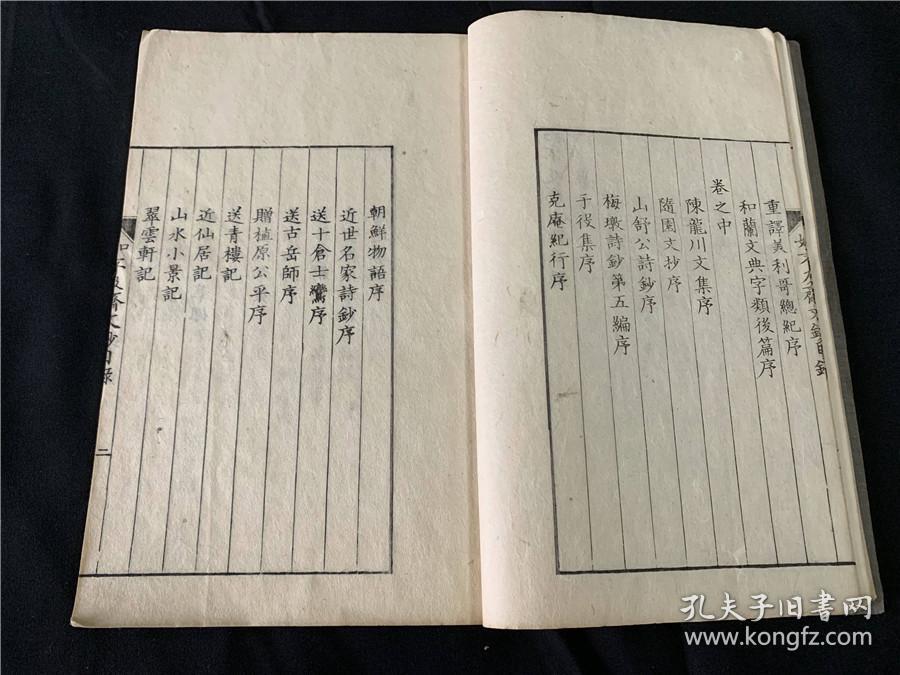 重譯美利哥總紀序
和蘭文典字類後篇序
卷之中
陳龍川文集序
隨園文抄序
山舒公詩鈔序
梅墩詩鈔第五編序
于役集序
克庵紀行序
朝鮮物語序
近世名家詩鈔序
送十倉士鸞序
送古岳師序
贈植原公平序
送青樓記
近仙居記
山水小景記
翠雲軒記
二
孔夫子旧书网
www.kongfz.com